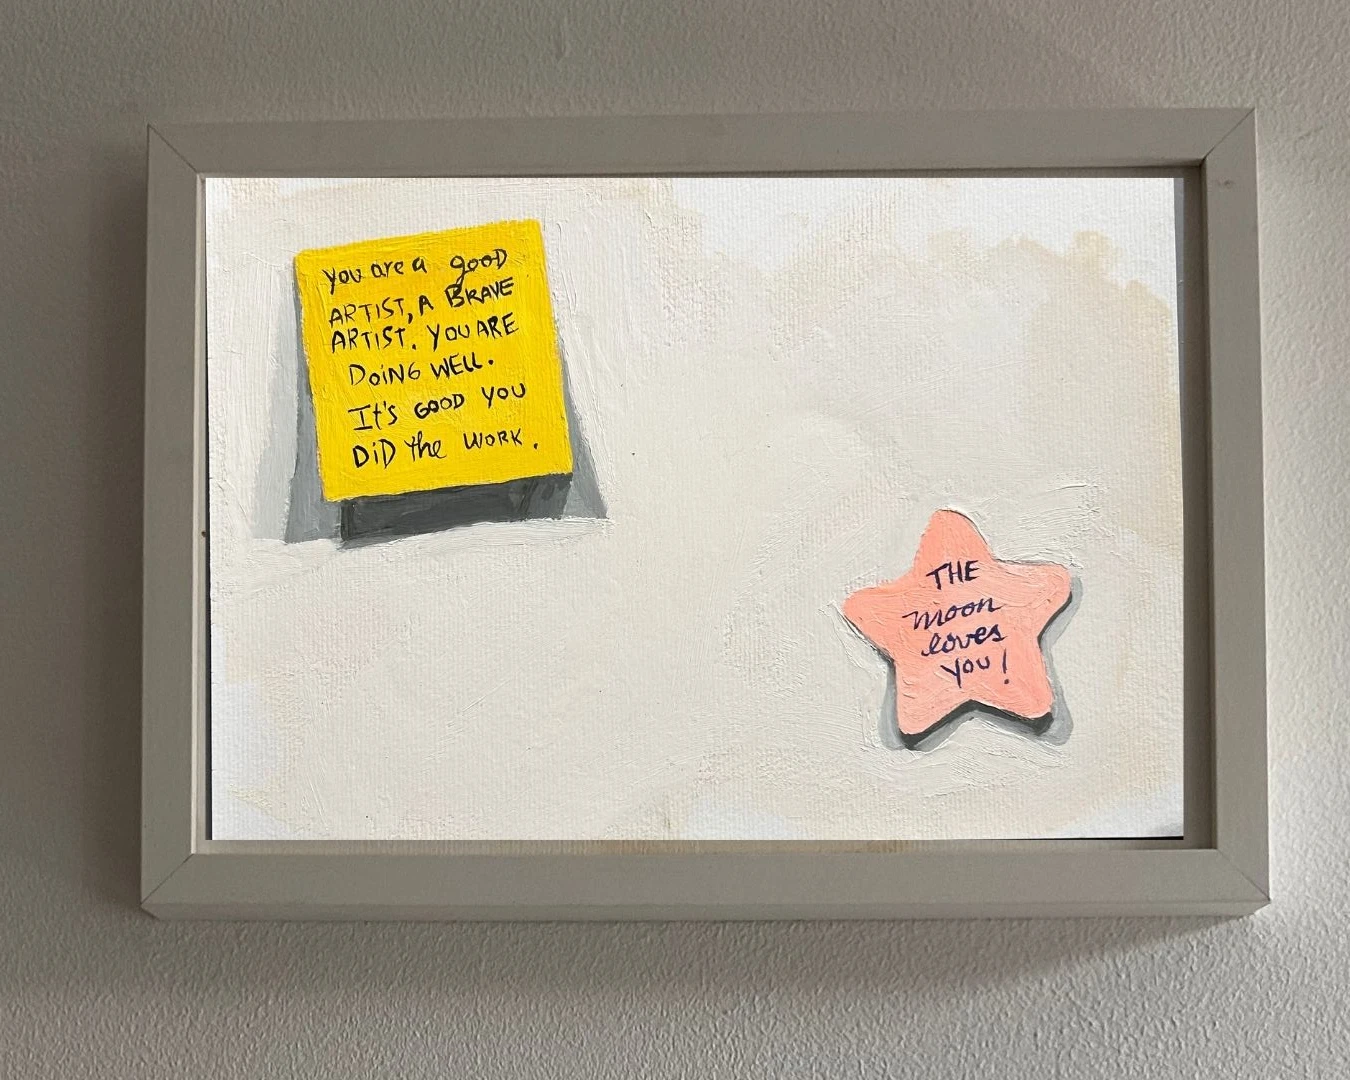 you are a gooD
ARTIST, A BRAVE
ARTIST. YOU ARE
DoiNG WELL.
It's GOOD YOU
DiD the WORK.
THE
moon
loves
you!